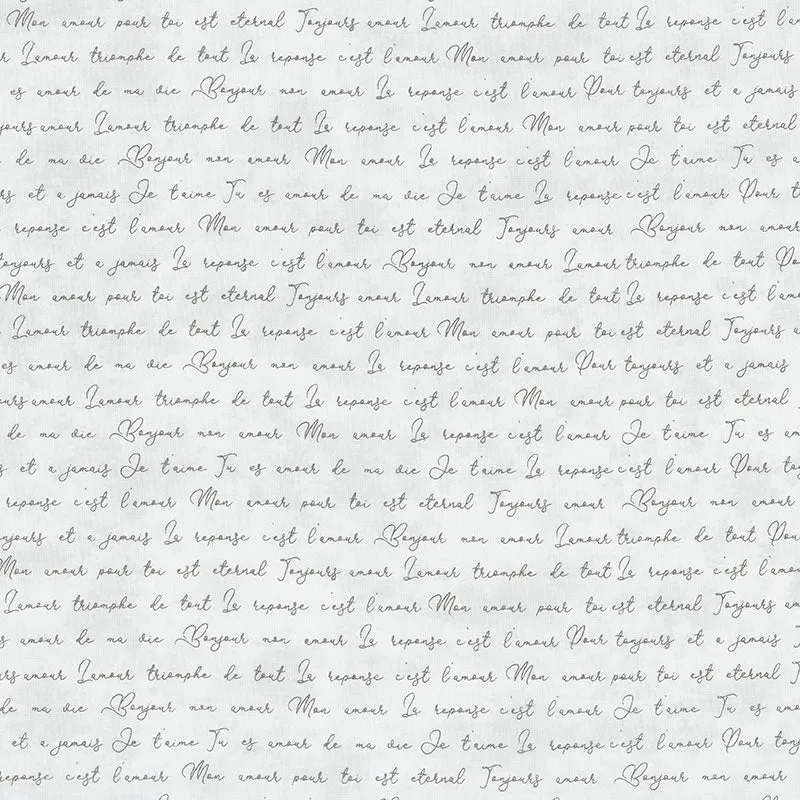 Mon amour pour toi est eternal Tonjours amour L'amour triomphe de tout La reponse c'est l'am
r L'amour triomphe de tout La reponse c'est l'amour Mon amour pour toi est eternal Tonjours
es amour de ma vie Bonjour mon amour La reponse c'est l'amour Pour tonjours et a jamais
jours amour L'amour triomphe de tout La reponse c'est l'amour Mon amour pour toi est eternal
de ma vie Bonjour mon amour Mon amour La reponse c'est l'amour Je t'aime Tu es a
rs et a jamais Je t'aime Tu es amour de ma vie Je t'aime La reponse c'est l'amour Pour t
reponse c'est l'amour Mon amour pour toi est eternal Tonjours amour Bonjour mon amour
tonjours et a jamais La reponse c'est l'amour Bonjour mon amour L'amour triomphe de tout Po
Mon amour pour toi est eternal Tonjours amour L'amour triomphe de tout La reponse c'est l'am
L'amour triomphe de tout La reponse c'est l'amour Mon amour pour toi est eternal Tonjours a
es amour de ma vie Bonjour mon amour La reponse c'est l'amour Pour tonjours et a jamais
ours amour L'amour triomphe de tout La reponse c'est l'amour Mon amour pour toi est eternal
de ma vie Bonjour mon amour Mon amour La reponse c'est l'amour Je t'aime Tu es am
s et a jamais Je t'aime Tu es amour de ma vie Je t'aime La reponse c'est l'amour Pour to
reponse c'est l'amour Mon amour pour toi est eternal Tonjours amour Bonjour mon amour
onjours et a jamais La reponse c'est l'amour Bonjour mon amour L'amour triomphe de tout Pou
Mon amour pour toi est eternal Tonjours amour L'amour triomphe de tout La reponse c'est l'amo
L'amour triomphe de tout La reponse c'est l'amour Mon amour pour toi est eternal Tonjours am
s amour de ma vie Bonjour mon amour La reponse c'est l'amour Pour tonjours et a jamais
urs amour L'amour triomphe de tout La reponse c'est l'amour Mon amour pour toi est eternal
de ma vie Bonjour mon amour Mon amour La reponse c'est l'amour Je t'aime Tu es am
et a jamais Je t'aime Tu es amour de ma vie Je t'aime La reponse c'est l'amour Pour tonj
reponse c'est l'amour Mon amour pour toi est eternal Tonjours amour Bonjour mon amour